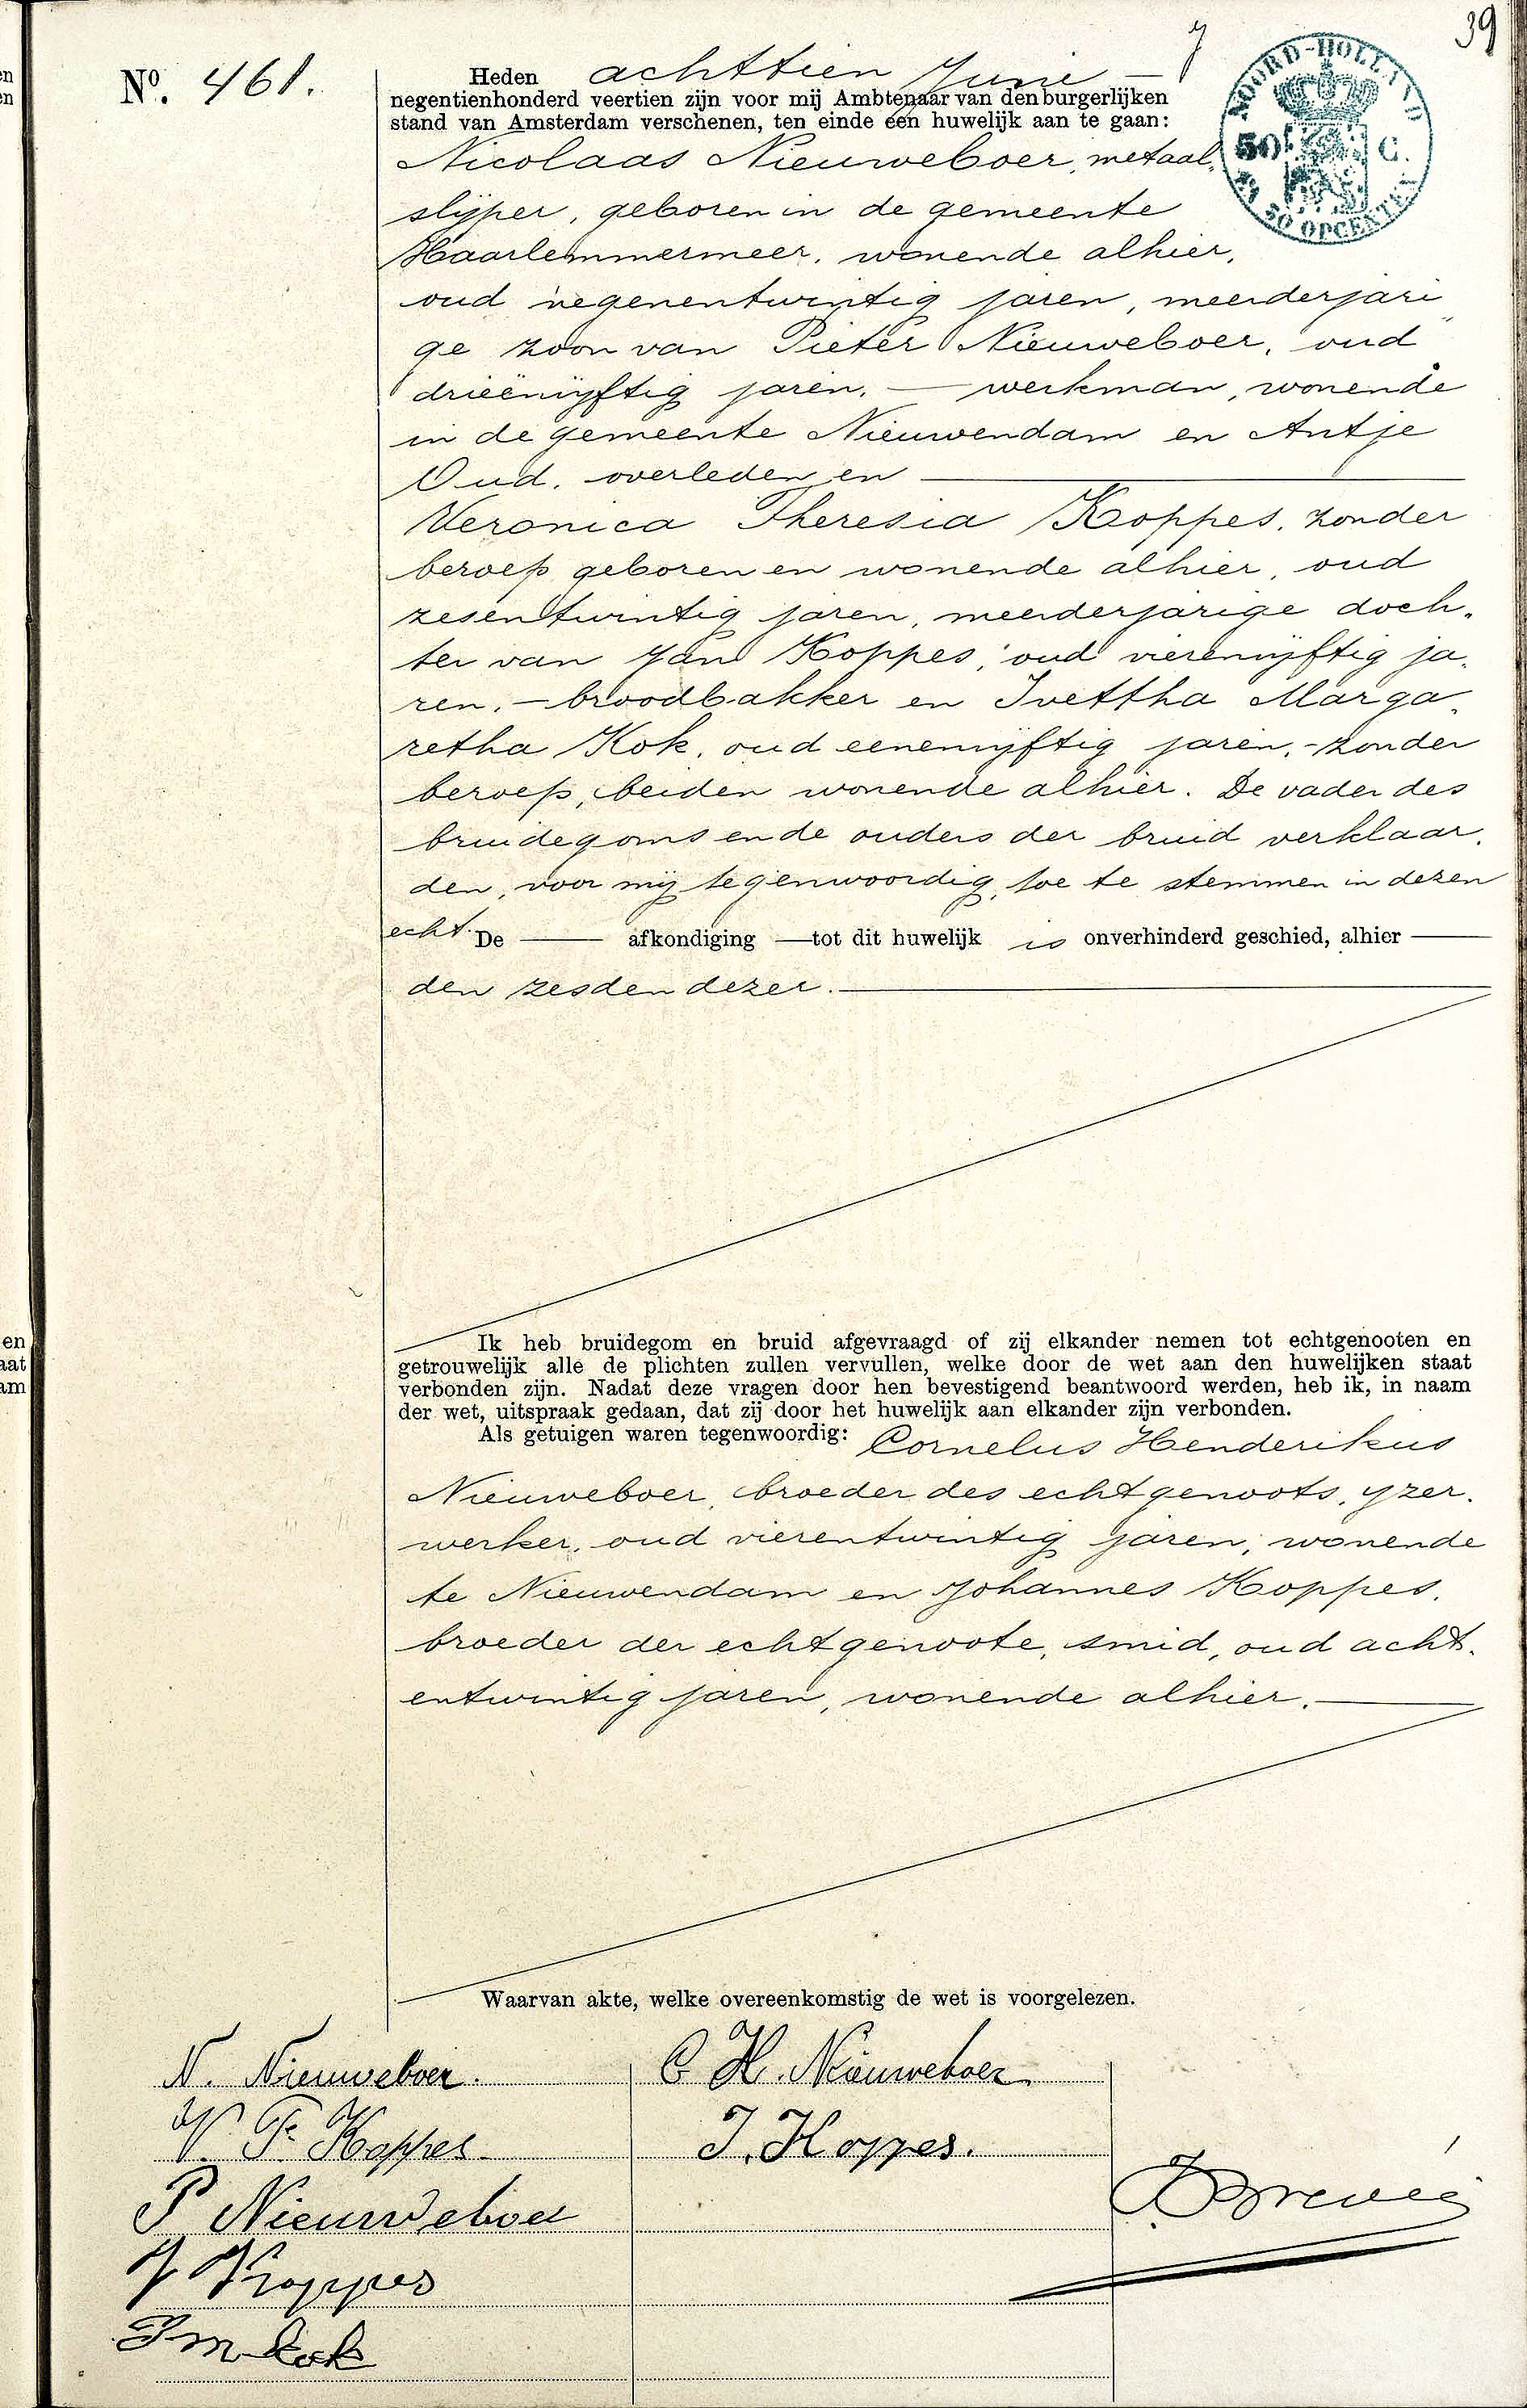 39
7
NOORD-HOLLAND
50 C.
EN 50 OPCENTEN
No. 461.
Heden achttien Juni —
negentienhonderd veertien zijn voor mij Ambtenaar van den burgerlijken
stand van Amsterdam verschenen, ten einde een huwelijk aan te gaan:
Nicolaas Nieuweboer, metaal-
slijper, geboren in de gemeente
Haarlemmermeer, wonende alhier,
oud negenentwintig jaren, meerderjari
ge zoon van Pieter Nieuweboer, oud
drieënvijftig jaren, — werkman, wonende
in de gemeente Nieuwendam en Antje
Oud, overleden, en —
Veronica Theresia Koppes, zonder
beroep, geboren en wonende alhier, oud
zesentwintig jaren, meerderjarige doch-
ter van Jan Koppes, oud vierenvijftig ja-
ren, — broodbakker en Ivettha Marga-
retha Kok, oud eenenvijftig jaren, - zonder
beroep, beiden wonende alhier. De vader des
bruidegoms en de ouders der bruid verklaar-
den, voor mij tegenwoordig, toe te stemmen in dezen
echt. De — afkondiging — tot dit huwelijk is onverhinderd geschied, alhier —
den zesden dezer. —
Ik heb bruidegom en bruid afgevraagd of zij elkander nemen tot echtgenooten en
getrouwelijk alle de plichten zullen vervullen, welke door de wet aan den huwelijken staat
verbonden zijn. Nadat deze vragen door hen bevestigend beantwoord werden, heb ik, in naam
der wet, uitspraak gedaan, dat zij door het huwelijk aan elkander zijn verbonden.
Als getuigen waren tegenwoordig: Cornelus Henderikus
Nieuweboer, broeder des echtgenoots, yzer-
werker, oud vierentwintig jaren, wonende
te Nieuwendam en Johannes Koppes,
broeder der echtgenoote, smid, oud acht-
entwintig jaren, wonende alhier. —
Waarvan akte, welke overeenkomstig de wet is voorgelezen.
N. Nieuweboer.
C H. Nieuweboer.
V. T. Koppes
J. Koppes.
P Nieuweboer
J Koppes
I M Kok
en
aat
am